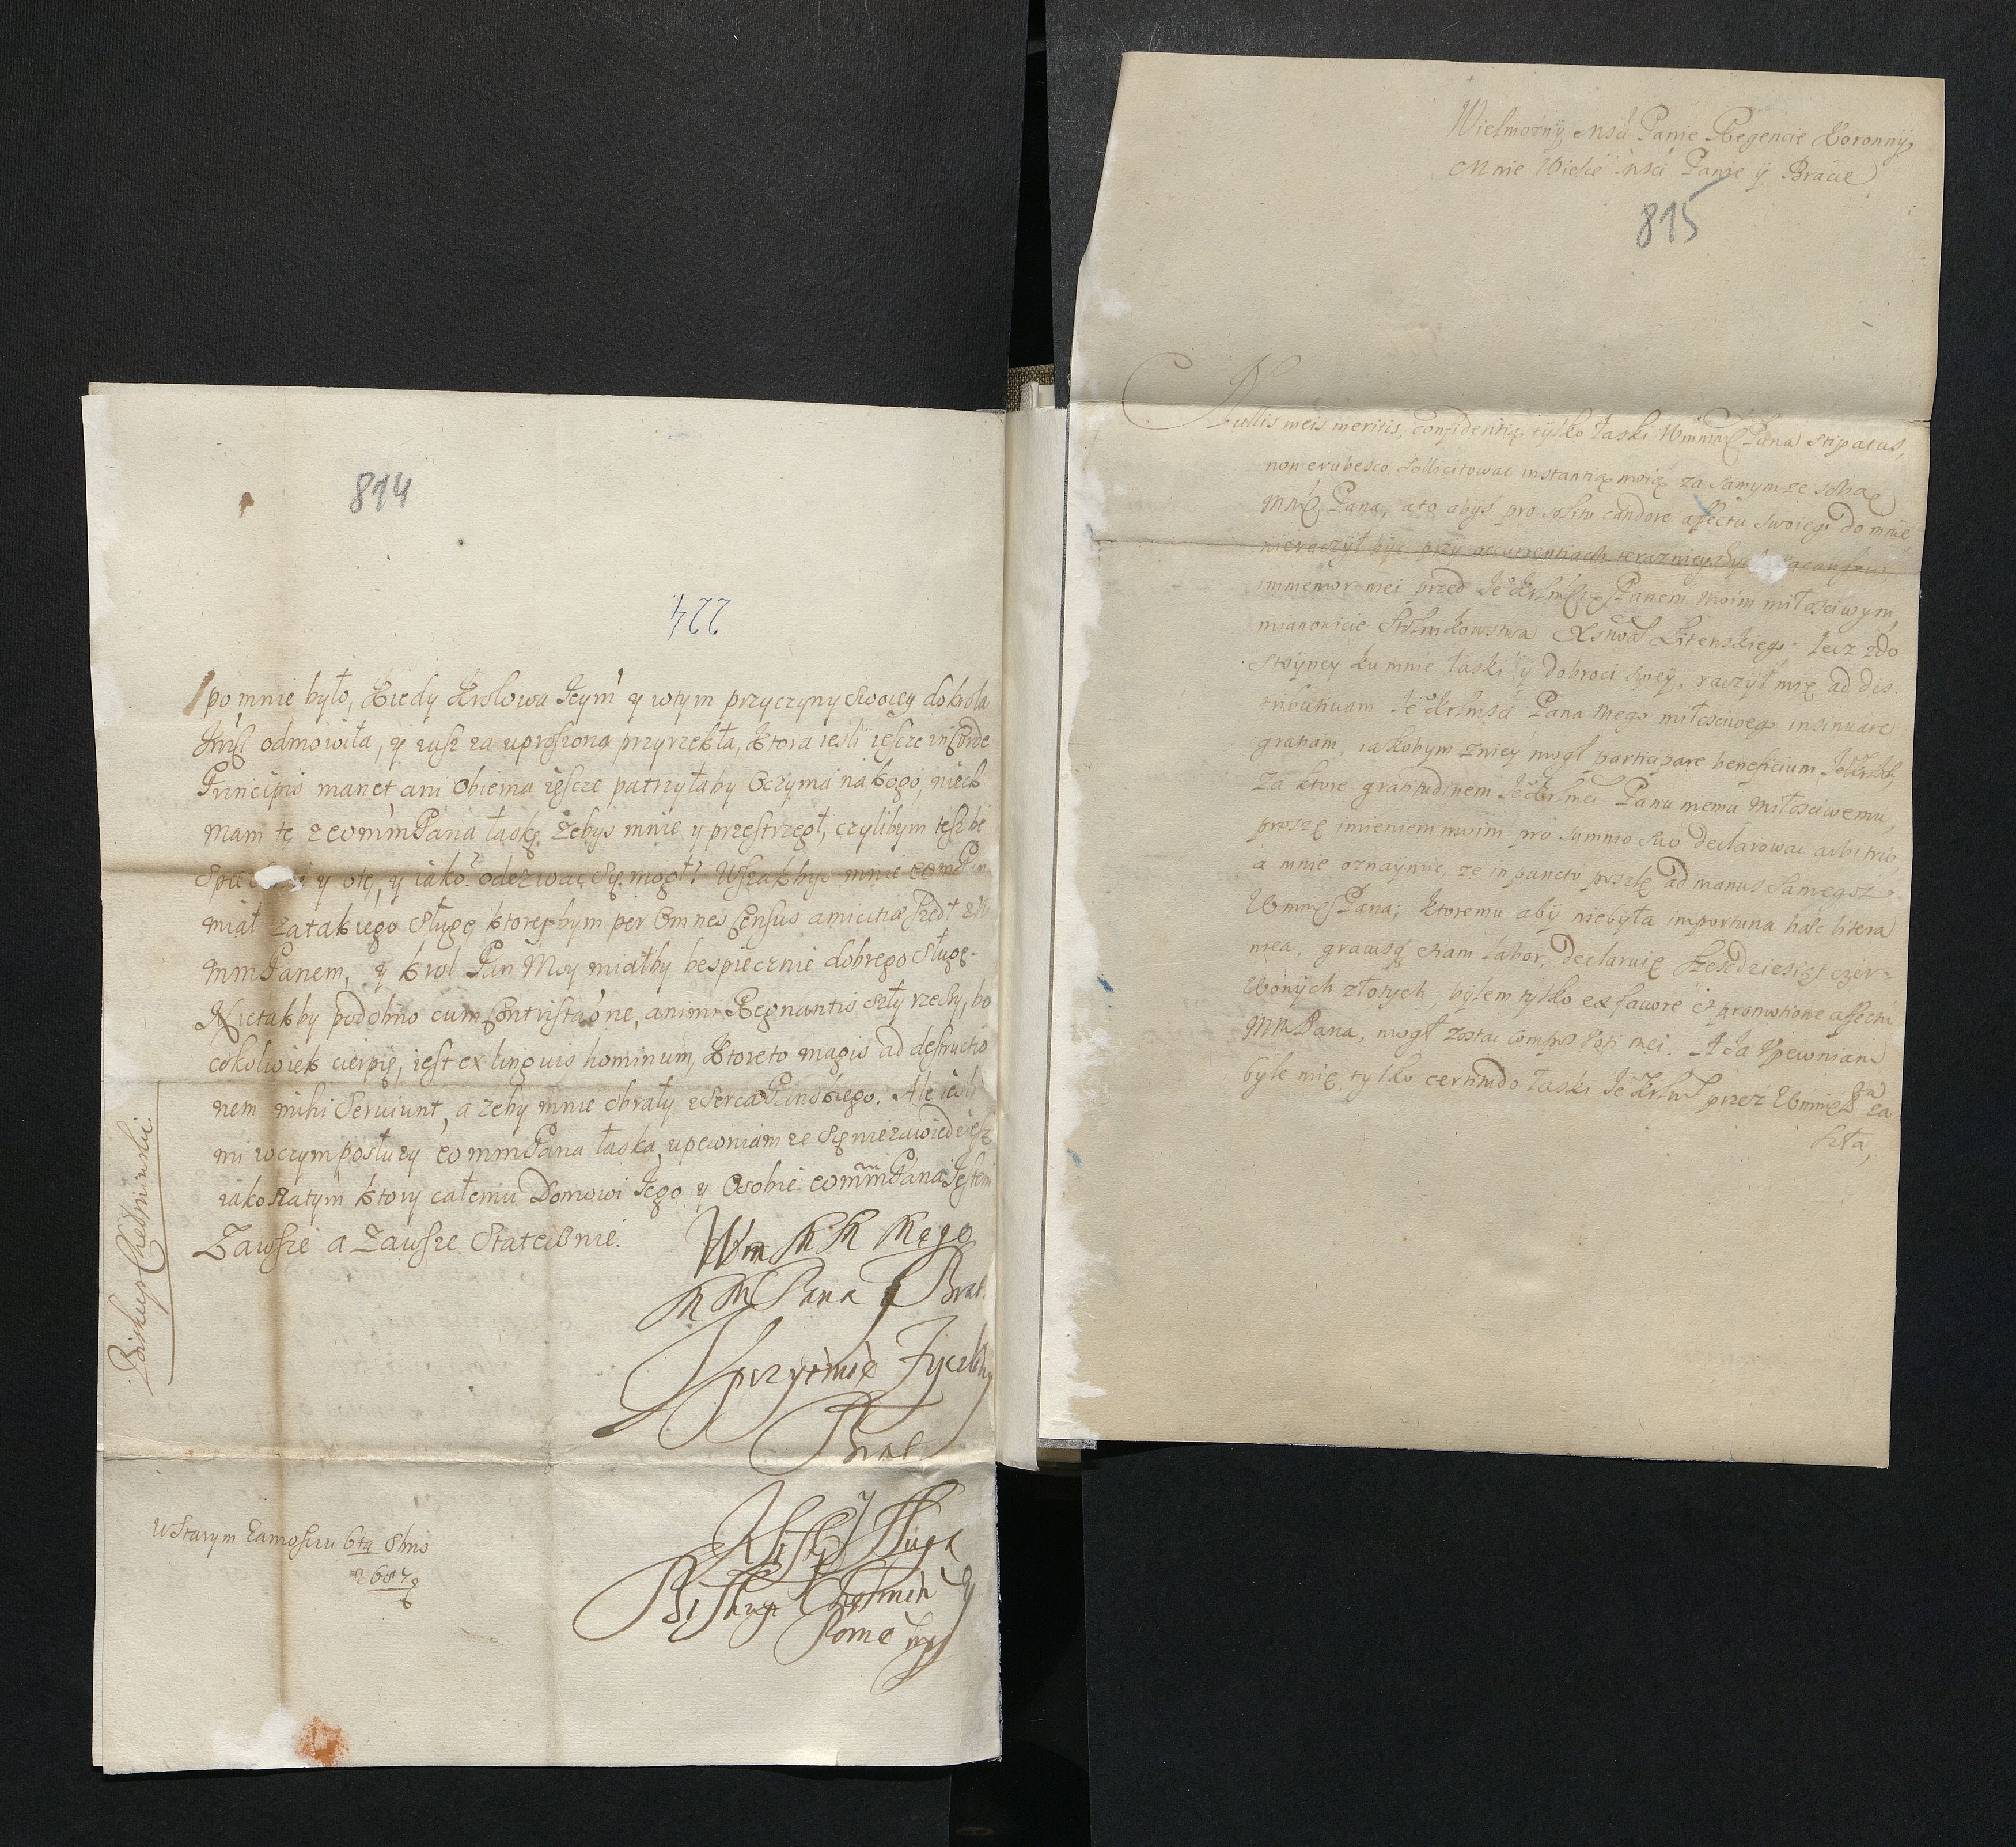 814
224
po mnie było, Kiedy Krolowa Jeym y wtym przyczyny swoiey dokłała
Krol odmowiła, y iusz za uproszoną przyrzekła, Ktora iesli iescze in Corde
Principis manet ani Obiema iescze patrzyłaby Oczyma na kogo, niech
mam tę z WmmPana łaskę żebys mnie y przestrzegł, czylibym tesz be
y otę, y iako odezwac się mogł? Wszak byś mnie
miał za takiego Sługę ktorybym per Omnes Census amicitiæ szedł z W
mmPanem, y krol Pan Moy miałby bespiecznie dobrego Sługę.
Nietakby podobno cum Contristaōne, animi Regnantis szły rzeczy, bo
cokolwiek cierpię, iest ex linguis hominum, Ktore to magis ad destructio
nem mihi Serviunt, a zeby mnie obrały z Serca Pańskiego. Ale iesli
mi wczym posłuzy WmmPana łaska, upewniam ze się niezawiedziesz
iako na tym ktory całemu Domowi Jego y Osobie WmmPana Jestem
Zawsze a Zawsze Statecznie.
Wm M M Mego
M M Pana y Brat
Uprzyimie Życzliwy
Brat
y Sługa
Biskup Chełminski y
Pome
W Starym Zamosciu 6ta 8bris
1687
Biskup Chełminski
Wielmożny Mśći Panie Regencie Koronny,
Mnie Wielce Mśći Panie y Bracie
815
Nullis meis meritis, confidentią tylko łaski WmmmPana stipatus,
non erubesco sollicitowac instantią moią za samym ze sobą
MmPana, a to abyś pro solito candore affectu swoiego do mnie
nieraczył być przy occurrentiach teraznieyszych
immemor mei przed Je Krlmścią Panem moim miłościwym,
mianowicie Stolnikowstwa Xstwa Litewskiego: lecz zdo
stoyney ku mnie łaski y dobroci swey, raczył mię ad dis-
tributivam Je Krlmsci Pana mego miłosciwego insinuare
gratiam, iakobym zniey mogł participare beneficium
Za ktore gratitudinem Je Krlmci Panu memu Miłosciwemu,
proszę imieniem moim pro summo suo declarowac arbitrio
a mnie oznaymic, ze in puncto poszlę ad manus samegoż
WmmPana; ktoremu aby niebyła importuna hæc litera
mea, gravisq etiam labor, declaruię sześćdziesiąt czer-
wonych złotych, bylem tylko ex favore et promotione affectu
MmPana, mogł zostac compos voti mei. A ia upewniam
byle mię tylko certitudo łaski Je Krlm przez WmmPana za
szła,